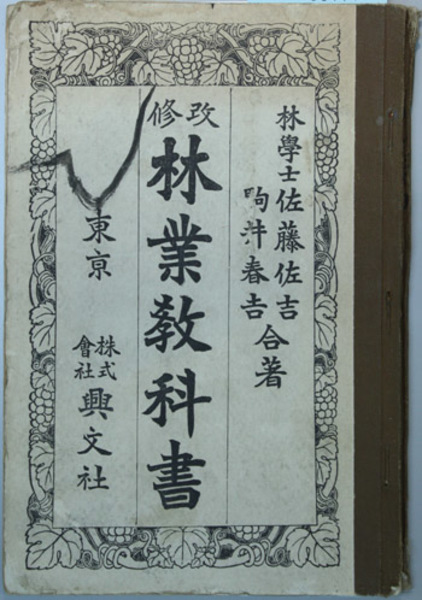 林學士佐藤佐吉
駒井春吉
合著
改修
林業教科書
東京
株式會社
興文社